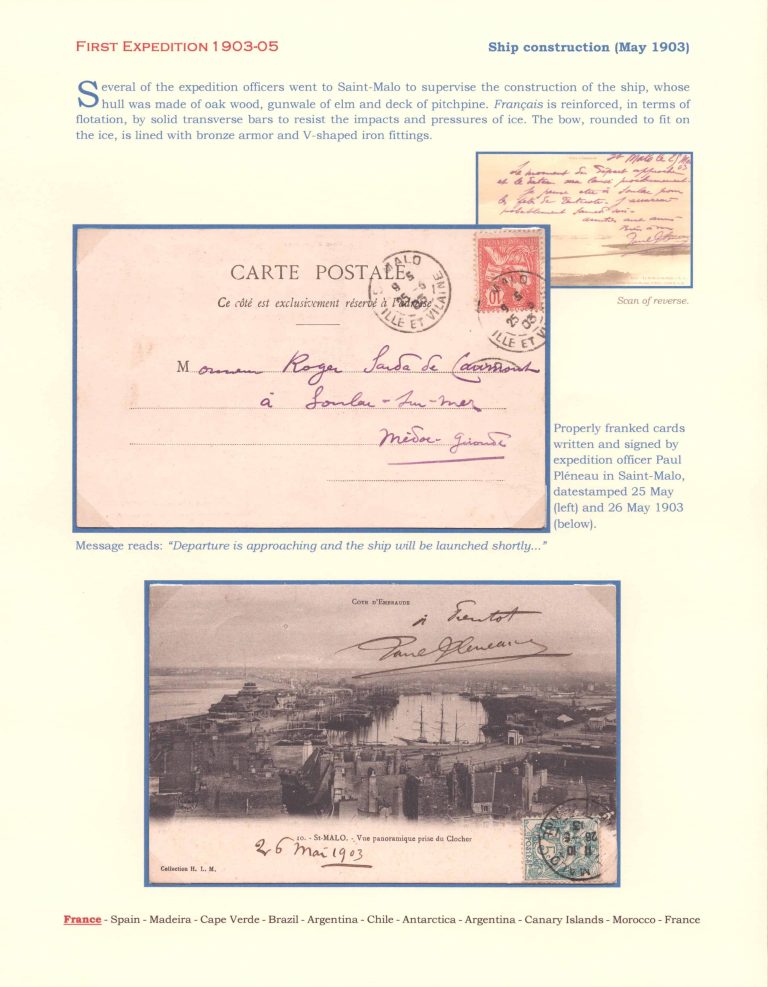 FIRST EXPEDITION 1903-05
Ship construction (May 1903)
Several of the expedition officers went to Saint-Malo to supervise the construction of the ship, whose
hull was made of oak wood, gunwale of elm and deck of pitchpine. Français is reinforced, in terms of
flotation, by solid transverse bars to resist the impacts and pressures of ice. The bow, rounded to fit on
the ice, is lined with bronze armor and V-shaped iron fittings.
St Malo le 25 Mai
03
Le moment du départ approche
et le bateau sera lancé prochainement.
Je pense être à Soulac pour
la fête de
probablement samedi soir.
Bien à vous
Paul Pléneau
Scan of reverse.
CARTE POSTALE
Ce côté est exclusivement réservé à l'adresse
MALO
ILLE ET VILAINE
MALO
ILLE ET VILAINE
10
Monsieur Roger Sarda de Caumont
à Soulac-sur-mer
Médoc-Gironde
Properly franked cards
written and signed by
expedition officer Paul
Pléneau in Saint-Malo,
datestamped 25 May
(left) and 26 May 1903
(below).
Message reads: “Departure is approaching and the ship will be launched shortly...”
COTE D'EMERAUDE
à bientôt
Paul Pléneau
10. - St-MALO. - Vue panoramique prise du Clocher
26 Mai 1903
Collection H. L. M.
France - Spain - Madeira - Cape Verde - Brazil - Argentina - Chile - Antarctica - Argentina - Canary Islands - Morocco - France